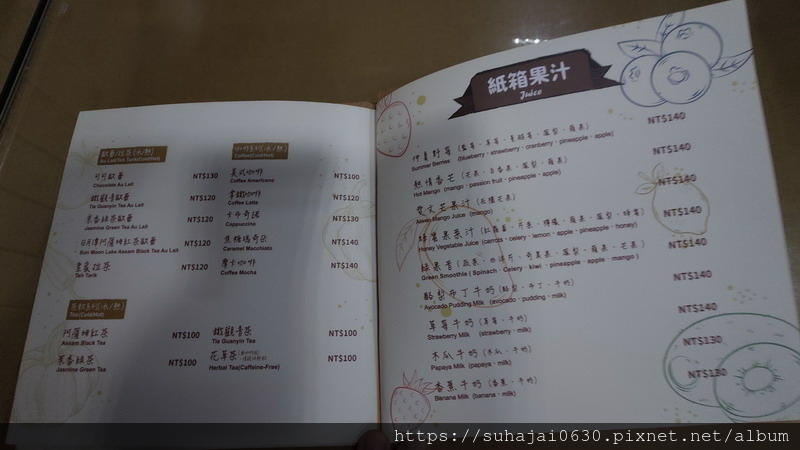 歐蕾/拉茶(冰/熱)
Au Lait/Teh Tarik(Cold/Hot)
可可歐蕾 NT$130
Chocolate Au Lait
鐵觀音歐蕾 NT$120
Tie Guanyin Tea Au Lait
茉香綠茶歐蕾 NT$120
Jasmine Green Tea Au Lait
日月潭阿薩姆紅茶歐蕾 NT$120
Sun Moon Lake Assam Black Tea Au Lait
皇家拉茶 NT$120
Teh Tarik
茶飲系列(冰/熱)
Tea(Cold/Hot)
阿薩姆紅茶 NT$100
Assam Black Tea
茉香綠茶 NT$100
Jasmine Green Tea
咖啡系列(冰/熱)
Coffee(Cold/Hot)
美式咖啡 NT$100
Coffee Americano
拿鐵咖啡 NT$120
Coffee Latte
卡布奇諾 NT$130
Cappuccino
焦糖瑪奇朵 NT$140
Caramel Macchiato
摩卡咖啡 NT$140
Coffee Mocha
鐵觀音茶 NT$100
Tie Guanyin Tea
花草茶 NT$100
Herbal Tea(Caffeine-Free)
紙箱果汁
Juice
仲夏野莓 (藍莓、草莓、蔓越莓、鳳梨、蘋果) NT$140
Summer Berries (blueberry、strawberry、cranberry、pineapple、apple)
熱情香芒 (芒果、百香果、鳳梨、蘋果) NT$140
Hot Mango (mango、passion fruit、pineapple、apple)
愛文芒果汁 NT$140
Aiwen Mango Juice (mango)
蜂蜜果菜汁 (紅蘿蔔、芹菜、檸檬、蘋果、鳳梨、蜂蜜) NT$140
Honey Vegetable Juice (carrots、celery、lemon、apple、pineapple、honey)
綠果昔 (菠菜、西洋芹、奇異果、鳳梨、蘋果、芒果) NT$140
Green Smoothie ( Spinach、Celery、kiwi、pineapple、apple、mango )
酪梨布丁牛奶 (酪梨、布丁、牛奶) NT$140
Avocado Pudding Milk (avocado、pudding、milk)
草莓牛奶 (草莓、牛奶) NT$140
Strawberry Milk (strawberry、milk)
木瓜牛奶 (木瓜、牛奶) NT$130
Papaya Milk (papaya、milk)
香蕉牛奶 (香蕉、牛奶) NT$130
Banana Milk (banana、milk)
https://suhajai0630.pixnet.net/album